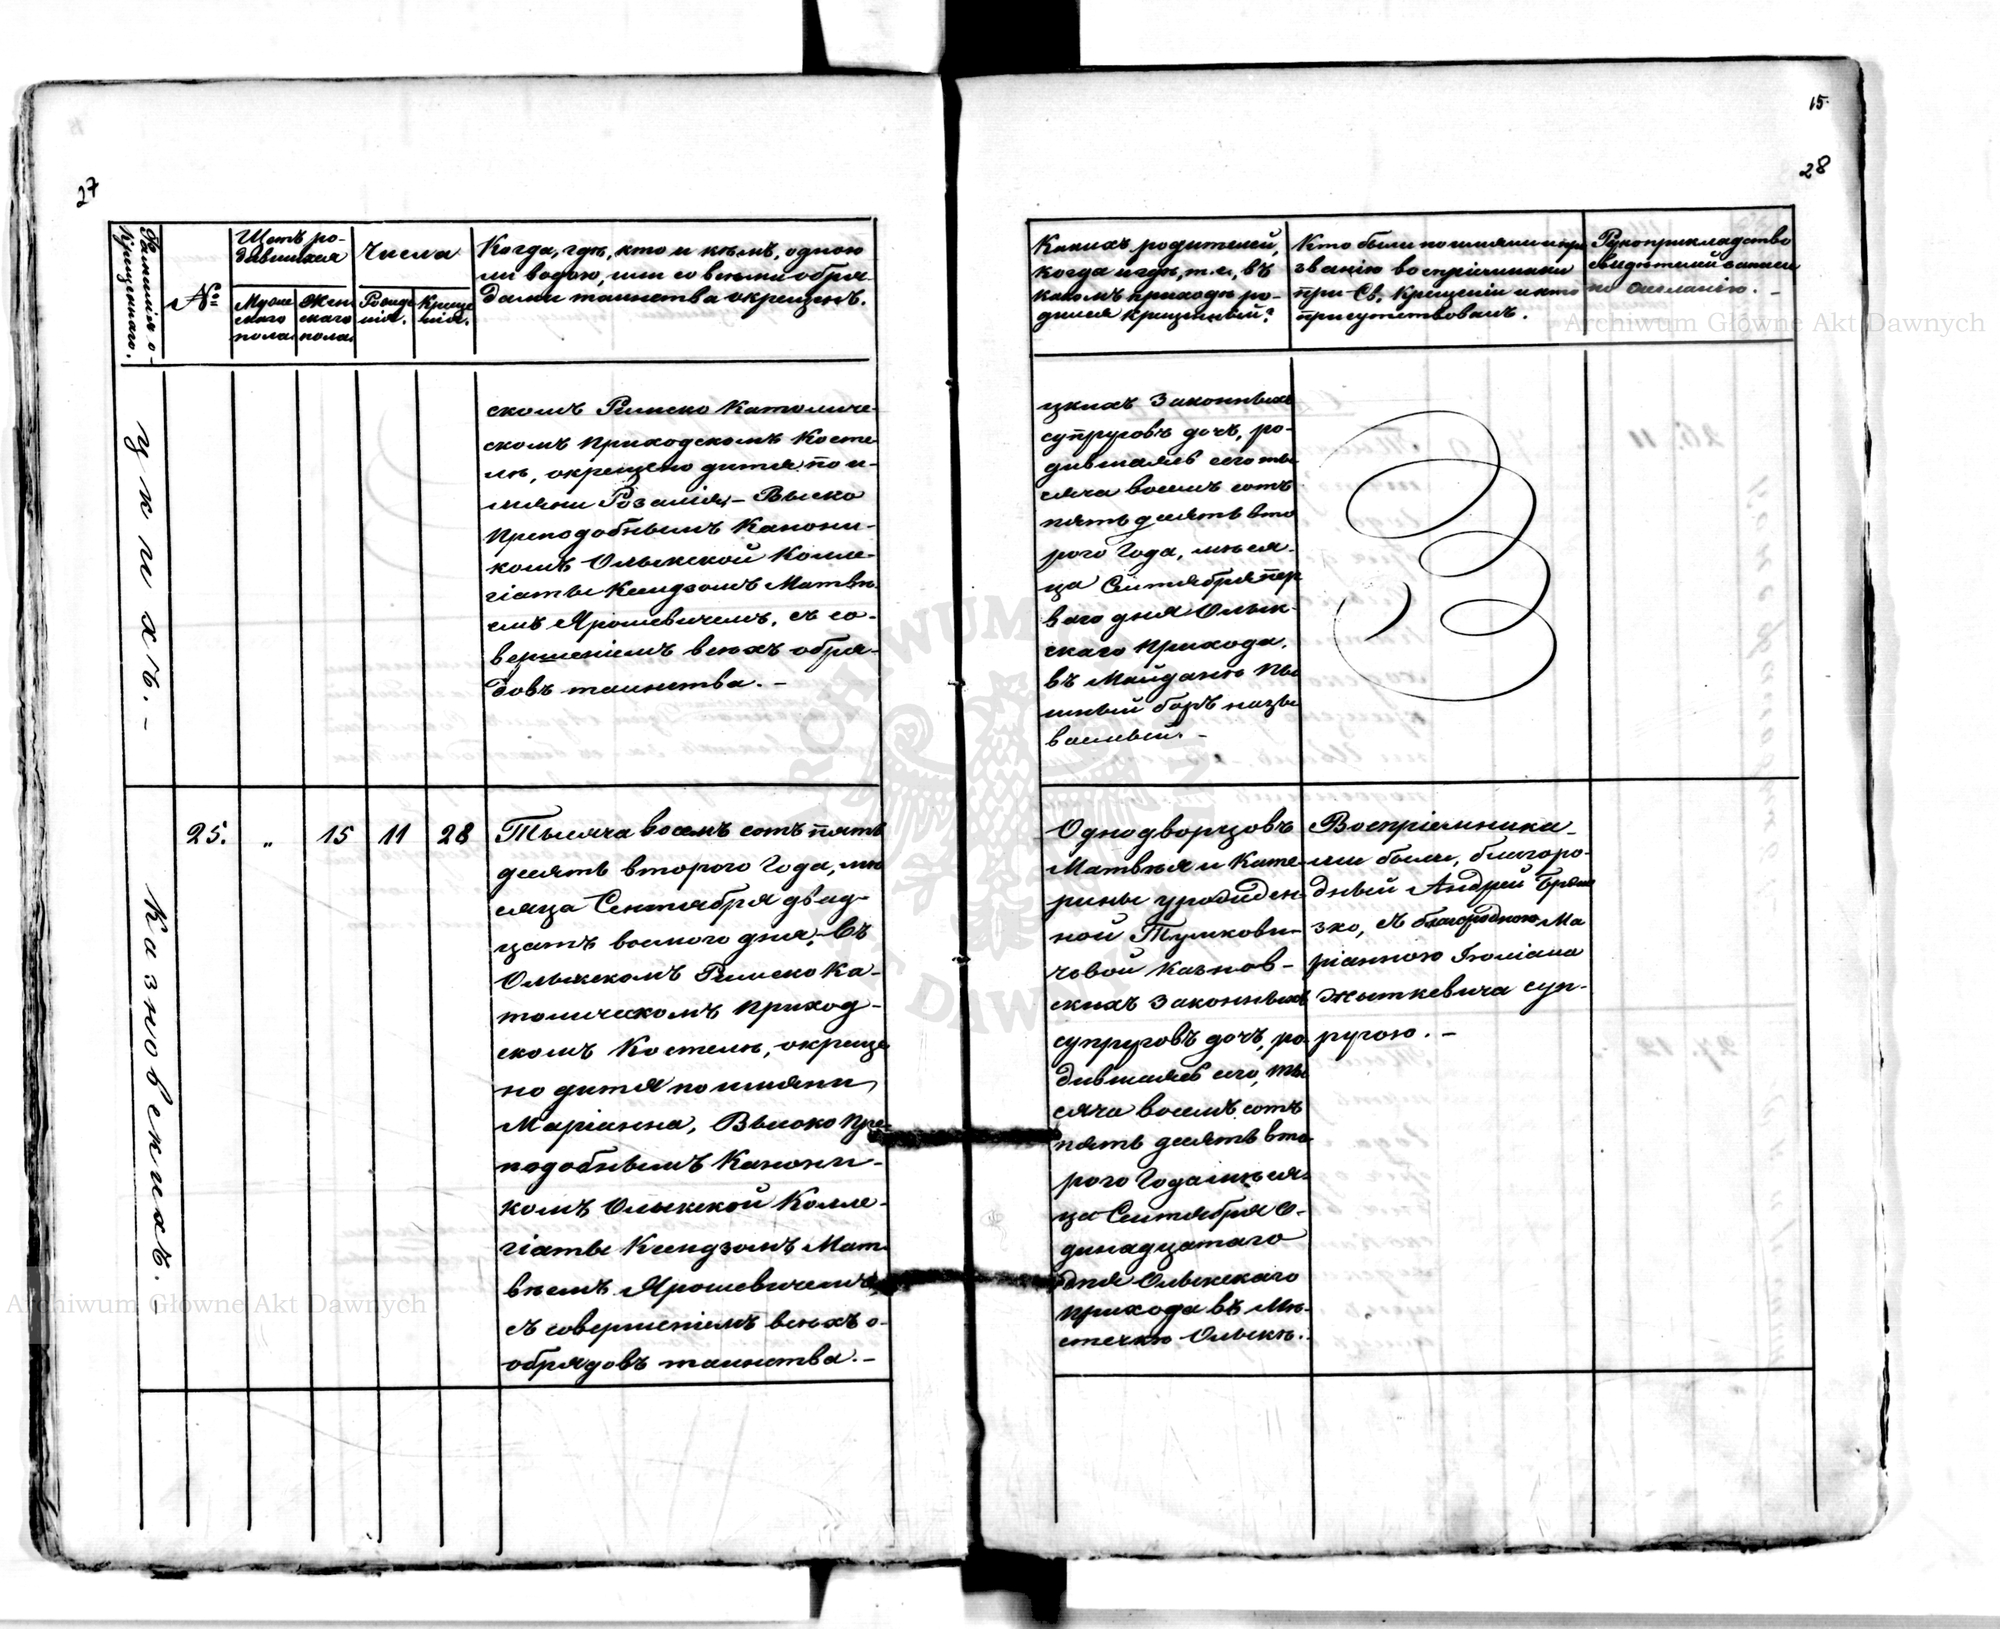 27
Фамилія о-
Крищенаго.
№
Щетъ ро-
дившихся
Мужс
скаго
пола
Жен
скаго
пола
Числа
Рожде
нія.
Креще
нія.
Когда, гдѣ, кто и кѣмъ, одною
ли водою, или со всѣми обря-
дами таинства окрещенъ.
цкихъ. -
скомъ Римско Католиче-
скомъ Приходскомъ Косте
лѣ, окрещено дитя по и-
мяни Розалія, - Высоко
Преподобнымъ Канони-
комъ Олыкской Колле-
гіаты Ксендзомъ Матвѣ
емъ Ярошевичемъ, съ со-
вершеніемъ всѣхъ обря-
довъ таинства. -
Казновскихъ.
25.
"
15
11
28
Тысяча восемъ сотъ пять
десять второго Года, мѣ
сяца Сентября двад-
цать восмого дня, въ
Олыкскомъ Римско Ка-
толическомъ Приход-
скомъ Костелѣ, окреще
но дитя по имяни
Маріанна, Высоко Пре-
подобнымъ Канони-
комъ Олыкской Колле-
гіаты Ксендзомъ Мат-
вѣемъ Ярошевичемъ,
съ совершеніемъ всѣхъ о-
обрядовъ таинства. -
15.
28
Какихъ родителей,
когда и гдѣ, т. е, въ
какомъ приходѣ ро-
дился Крищенный?
Кто были по имяни и про
званію воспріемники
при Св. Крещеніи и кто
присутствовалъ.
Рукоприкладство
свидѣтелей записи
по желанію. -
цкихъ Законныхъ
супруговъ дочь, ро-
дившаясь сего ты
сяча восемъ сотъ
пять десять вто
рого Года, мѣся-
ца Сентября пер
ваго дня Олык-
скаго Прихода,
въ Майданѣ Пы
шный боръ назы
ваемый. -
Однодворцовъ
Матвѣя и Кате-
рины урожден-
ной
Казнов-
скихъ Законныхъ
супруговъ дочь, ро
дившаясь сего, ты
сяча восемъ сотъ
пять десять вто-
рого Года мѣся-
ца Сентября О-
динадцатаго
дня Олыкскаго
Прихода въ Мѣ-
стечкѣ Олыкѣ.
Воспріемника-
ми были, благоро-
дный Андрей
зко, съ благородною Ма
ріанною
Жыткевича суп-
ругою. -
Archiwum Główne Akt Dawnych
Archiwum Główne Akt Dawnych